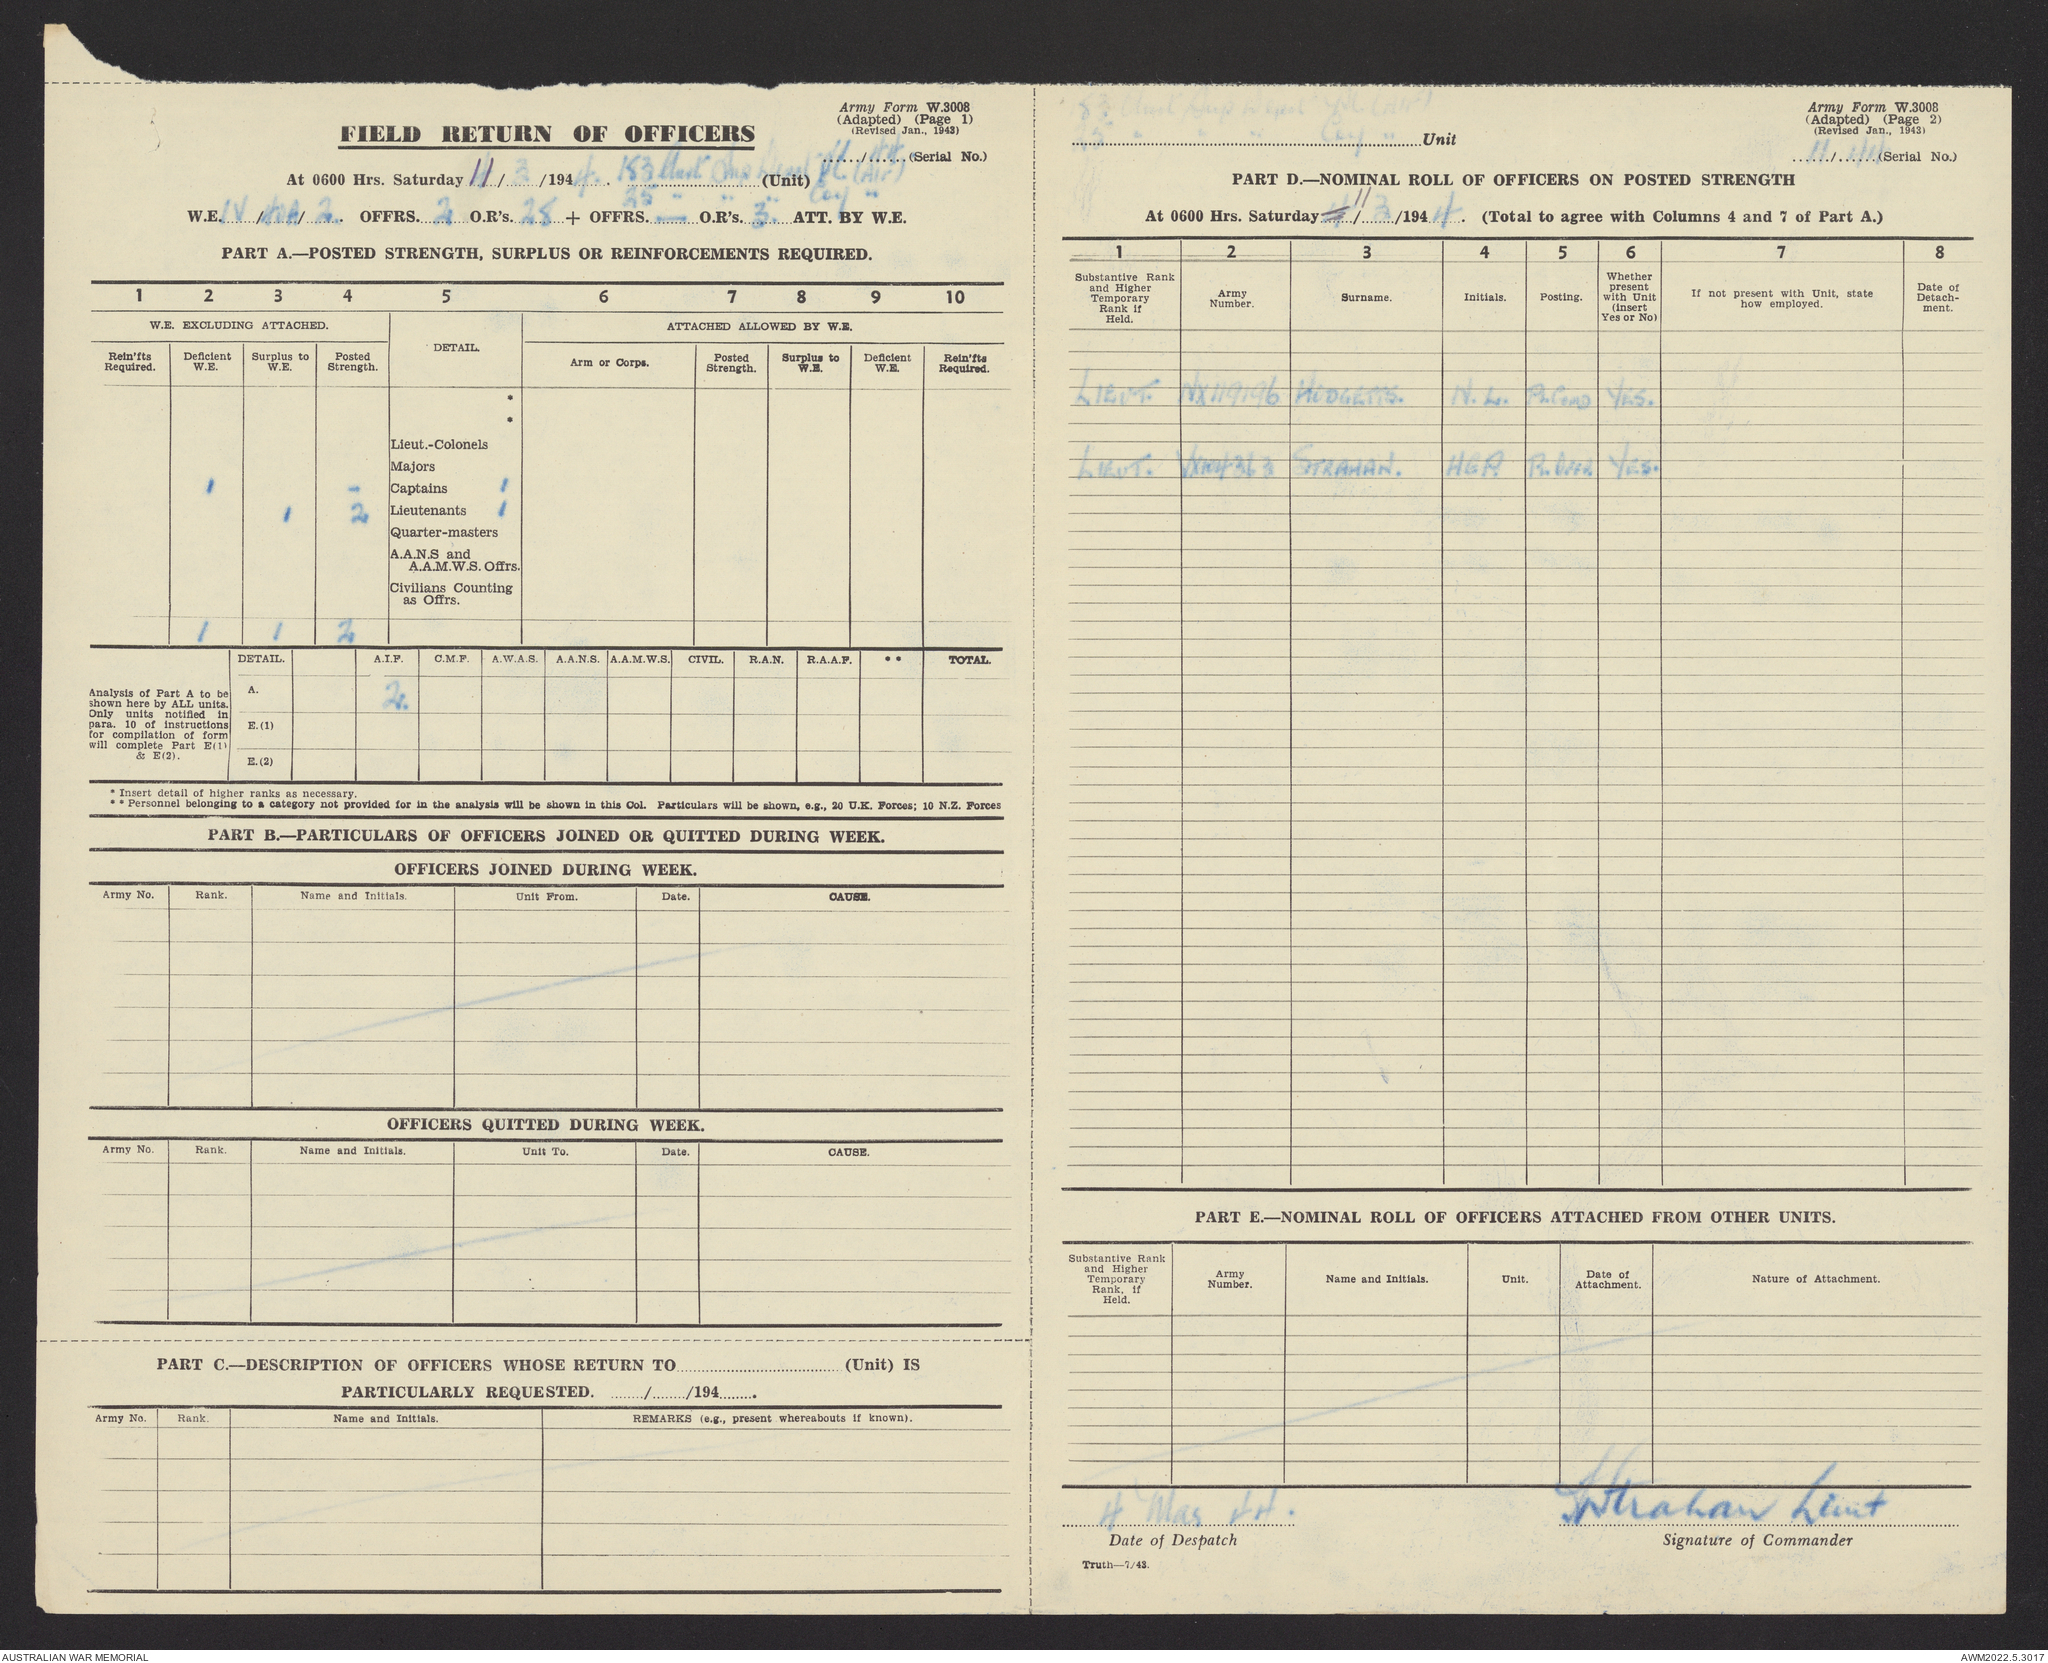 Army Form W.3008
(Adapted) (Page 1)
(Revised Jan., 1943)
FIELD RETURN OF OFFICERS
....../....... (Serial No.)
At 0600 Hrs. Saturday 11/3/1944. 183 (Unit) PL (Air)
25 " " " Coy "
W.E. IV / / 2. OFFRS. 2 O.R's. 25 + OFFRS. — O.R's. 3. ATT. BY W.E.
PART A.—POSTED STRENGTH, SURPLUS OR REINFORCEMENTS REQUIRED.
1 2 3 4 5 6 7 8 9 10
W.E. EXCLUDING ATTACHED.
DETAIL.
ATTACHED ALLOWED BY W.E.
Rein'fts Required.
Deficient W.E.
Surplus to W.E.
Posted Strength.
Arm or Corps.
Posted Strength.
Surplus to W.E.
Deficient W.E.
Rein'fts Required.
*
*
Lieut.-Colonels
Majors
1 - Captains 1
1 2 Lieutenants 1
Quarter-masters
A.A.N.S and
A.A.M.W.S. Offrs.
Civilians Counting
as Offrs.
1 1 2
DETAIL. A.I.F. C.M.F. A.W.A.S. A.A.N.S. A.A.M.W.S. CIVIL. R.A.N. R.A.A.F. * * TOTAL.
Analysis of Part A to be
shown here by ALL units.
Only units notified in
para. 10 of instructions
for compilation of form
will complete Part E(1)
& E(2).
A. 2.
E.(1)
E.(2)
* Insert detail of higher ranks as necessary.
* * Personnel belonging to a category not provided for in the analysis will be shown in this Col. Particulars will be shown, e.g., 20 U.K. Forces; 10 N.Z. Forces
PART B.—PARTICULARS OF OFFICERS JOINED OR QUITTED DURING WEEK.
OFFICERS JOINED DURING WEEK.
Army No. Rank. Name and Initials. Unit From. Date. CAUSE.
OFFICERS QUITTED DURING WEEK.
Army No. Rank. Name and Initials. Unit To. Date. CAUSE.
PART C.—DESCRIPTION OF OFFICERS WHOSE RETURN TO.............................. (Unit) IS
PARTICULARLY REQUESTED. ......../......../194........
Army No. Rank. Name and Initials. REMARKS (e.g., present whereabouts if known).
Army Form W.3008
(Adapted) (Page 2)
(Revised Jan., 1943)
25 " " " Coy " Unit
....../....... (Serial No.)
PART D.—NOMINAL ROLL OF OFFICERS ON POSTED STRENGTH
At 0600 Hrs. Saturday 11/3/1944. (Total to agree with Columns 4 and 7 of Part A.)
1 2 3 4 5 6 7 8
Substantive Rank and Higher Temporary Rank if Held.
Army Number.
Surname.
Initials.
Posting.
Whether present with Unit (insert Yes or No)
If not present with Unit, state how employed.
Date of Detachment.
LIEUT. NX119196 HUDGETTS. N. L. YES.
LIEUT. STRAHAN. YES.
PART E.—NOMINAL ROLL OF OFFICERS ATTACHED FROM OTHER UNITS.
Substantive Rank and Higher Temporary Rank, if Held.
Army Number.
Name and Initials.
Unit.
Date of Attachment.
Nature of Attachment.
4 Mar 44.
Strahan Lieut
Date of Despatch
Signature of Commander
Truth—7/43.
AUSTRALIAN WAR MEMORIAL
AWM2022.5.3017